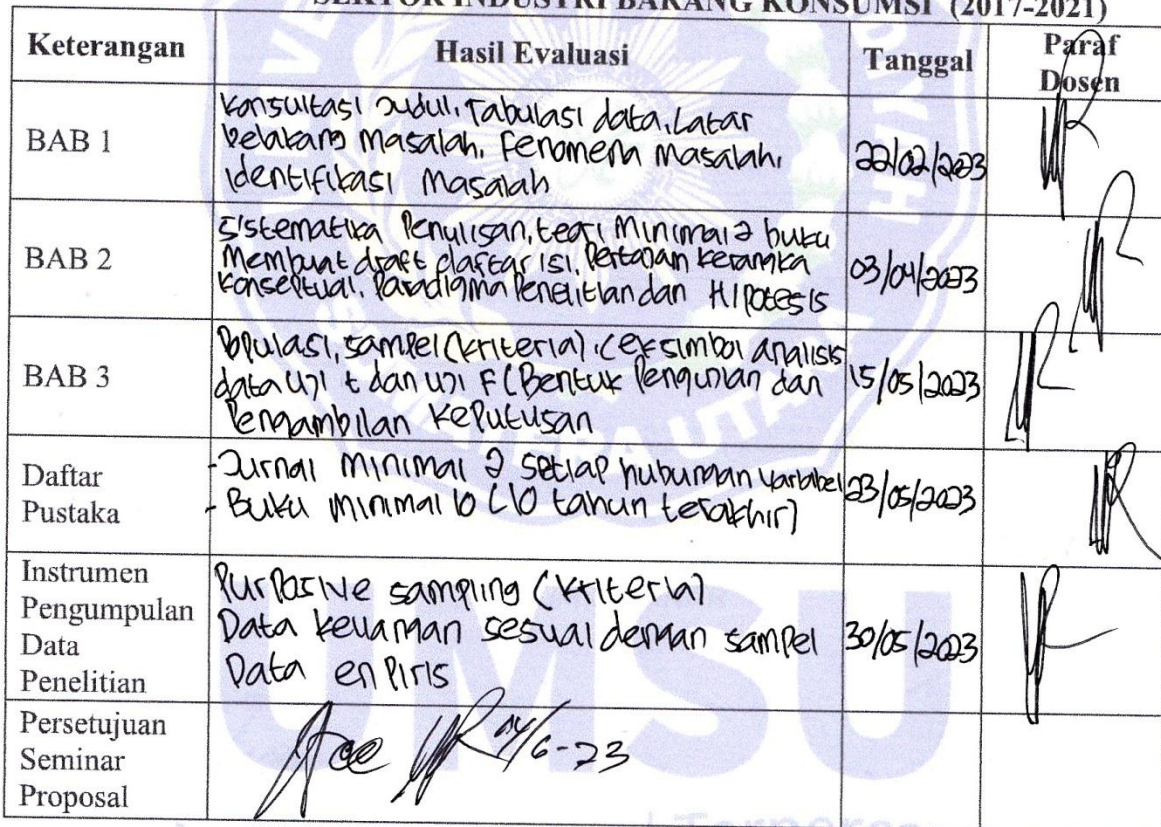 SEKTOR INDUSTRI BARANG KONSUMSI (2017-2021)
Keterangan Hasil Evaluasi Tanggal Paraf Dosen
BAB 1
Konsultasi Judul, Tabulasi data, Latar
belakang Masalah, Fenomena Masalah,
Identifikasi Masalah
22/02/2023
BAB 2
Sistematika Penulisan, teori Minimal 2 buku
Membuat draft daftar isi, Pertajam kerangka
Konseptual, Paradigma Penelitian dan Hipotesis
03/04/2023
BAB 3
Populasi, sampel (kriteria), cek simbol analisis
data uji t dan uji F (Bentuk Pengujian dan
Pengambilan Keputusan
15/05/2023
Daftar
Pustaka
- Jurnal Minimal 2 setiap hubungan variabel
- Buku minimal 10 (10 tahun terakhir)
23/05/2023
Instrumen
Pengumpulan
Data
Penelitian
Purposive sampling (kriteria)
Data keuangan sesuai dengan sampel
Data enpiris
30/05/2023
Persetujuan
Seminar
Proposal
Acc
/6-23
UMSU